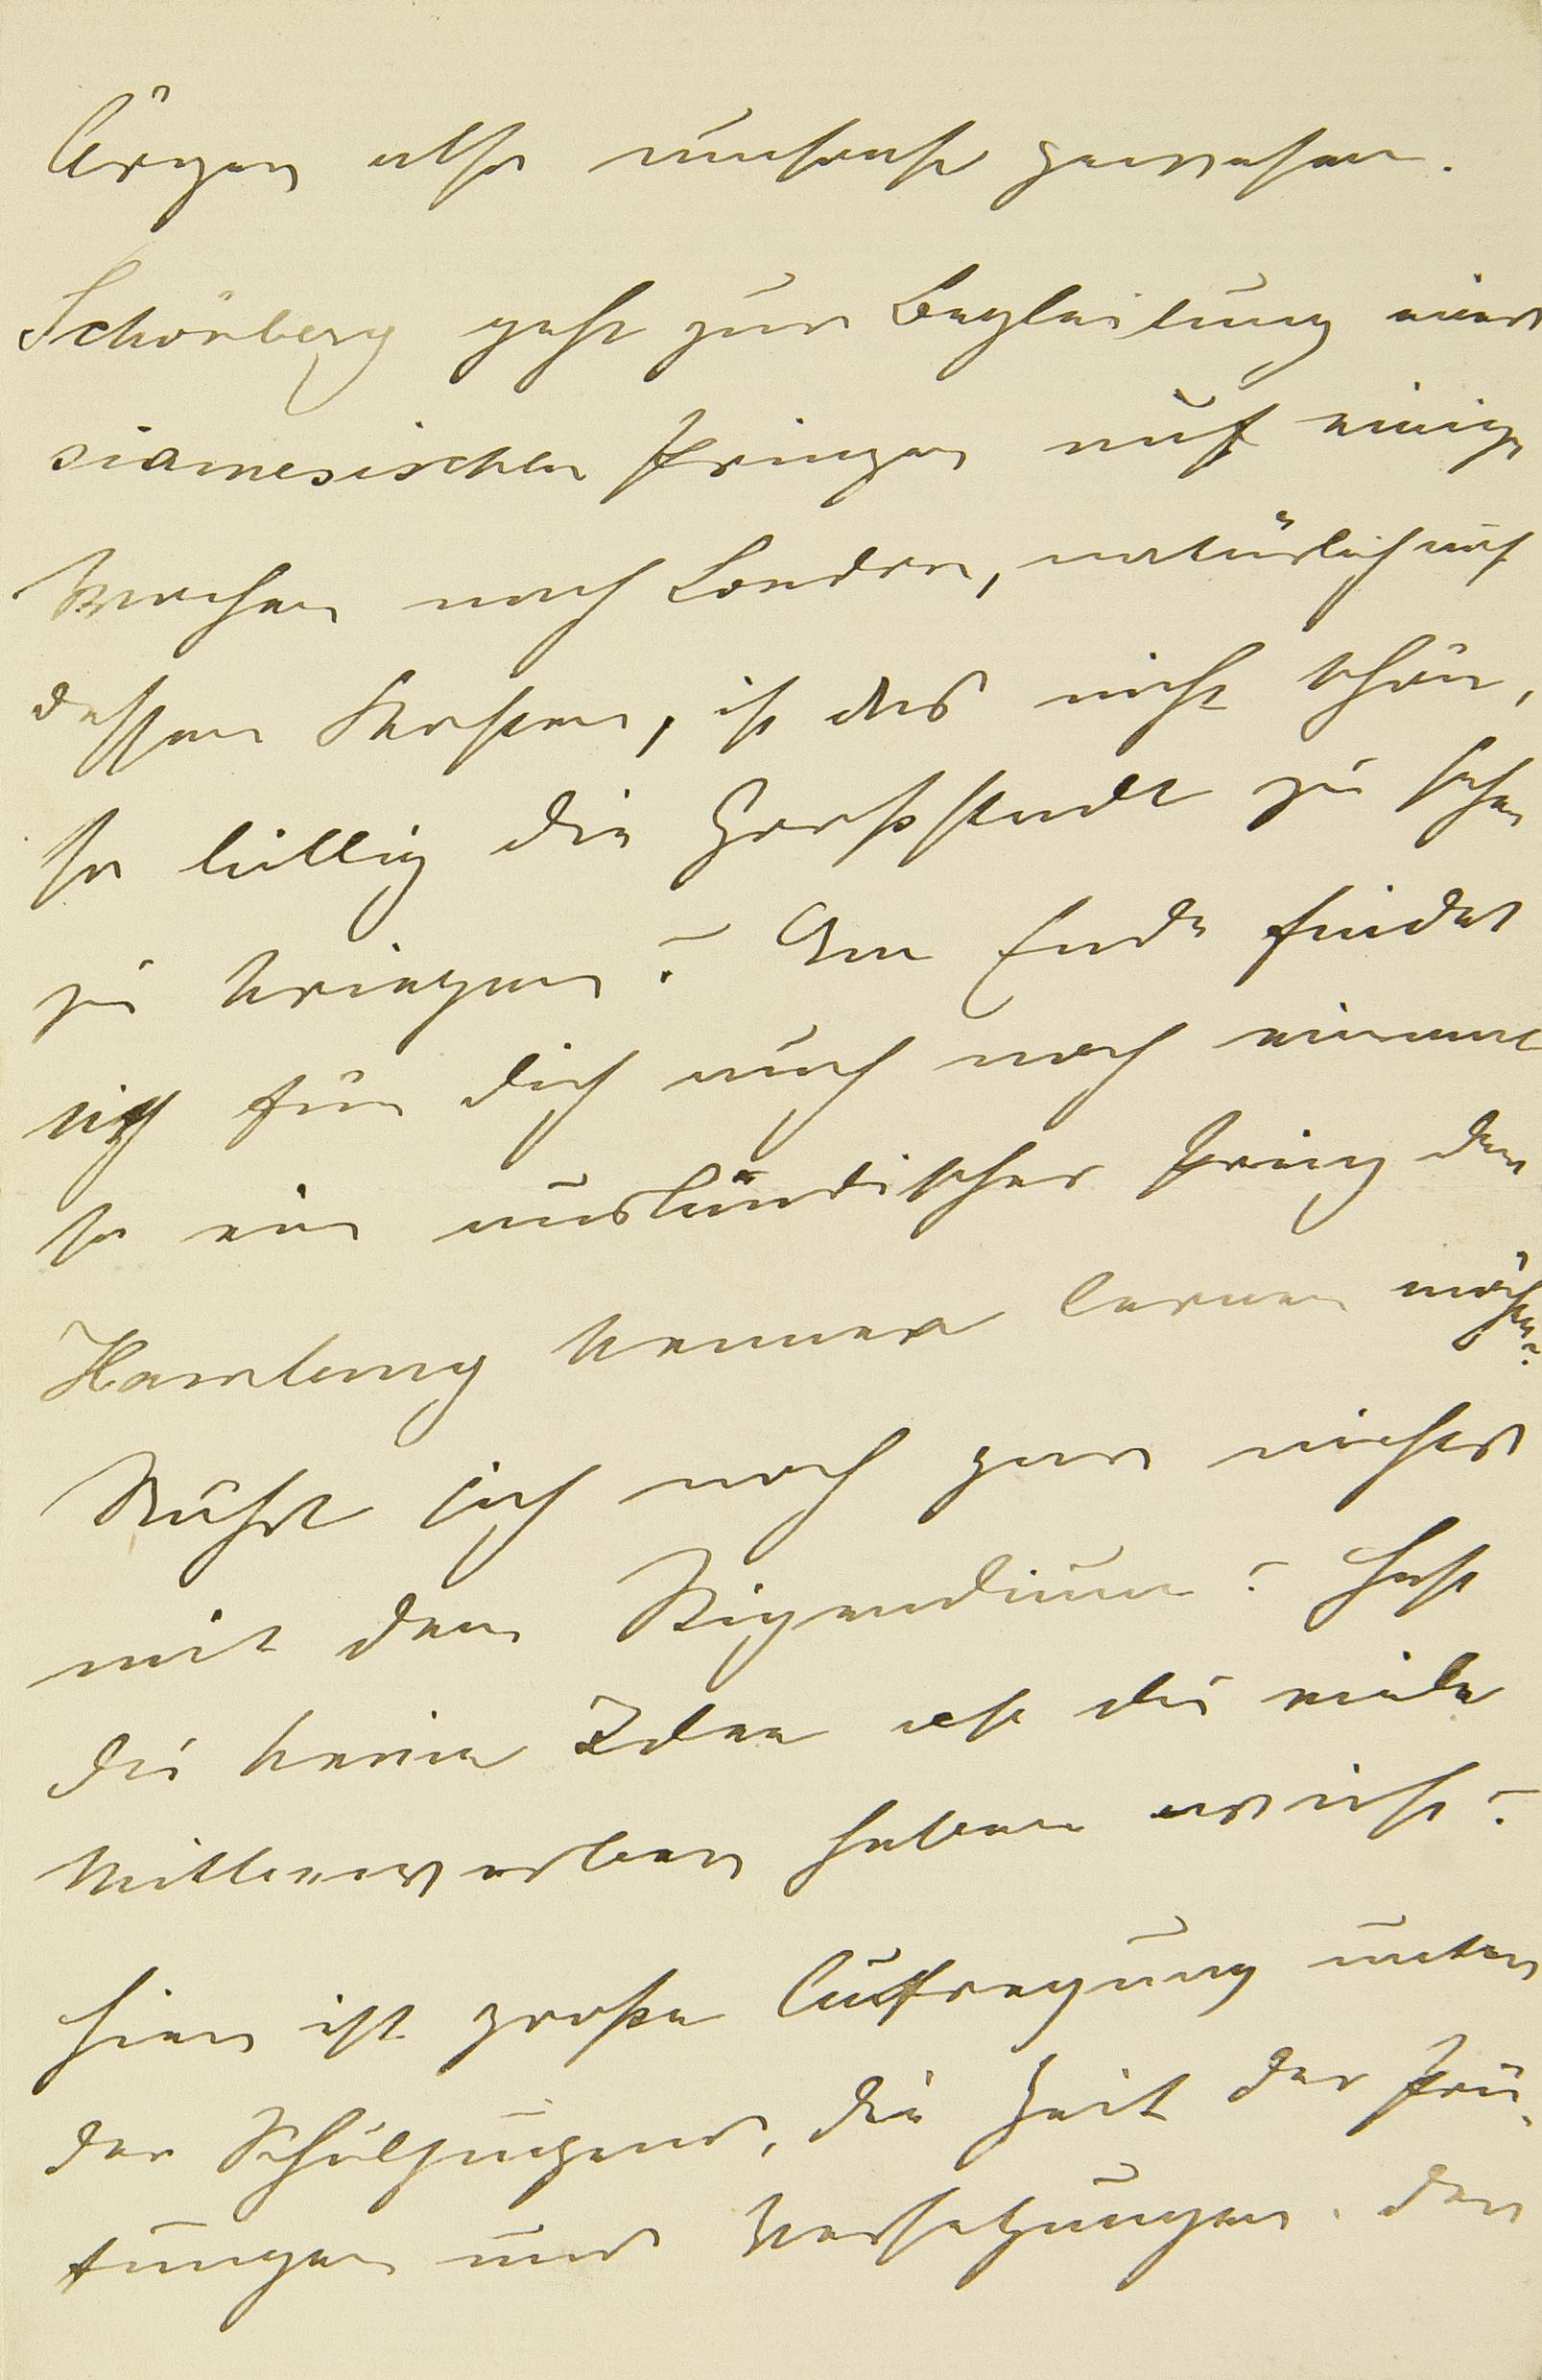 Ärger also umsonst gewesen.
Schönberg geht zur Begleitung eines
siamesischen Prinzen auf einige
Wochen nach London, natürlich auf
dessen Kosten, ist das nicht schön,
so billig die Großstadt zu sehen
zu kriegen? Am Ende findet
sich für dich auch noch einmal
so ein ausländischer Prinz der
Hamburg kennen lernen möchte?
Rührt sich noch gar nichts
mit dem Stipendium? Hast
du keine Idee ob du viele
Mitbewerber haben wirst?
Hier ist große Aufregung unter
der Schuljugend, die Zeit der Prü-
fungen und Versetzungen. Der